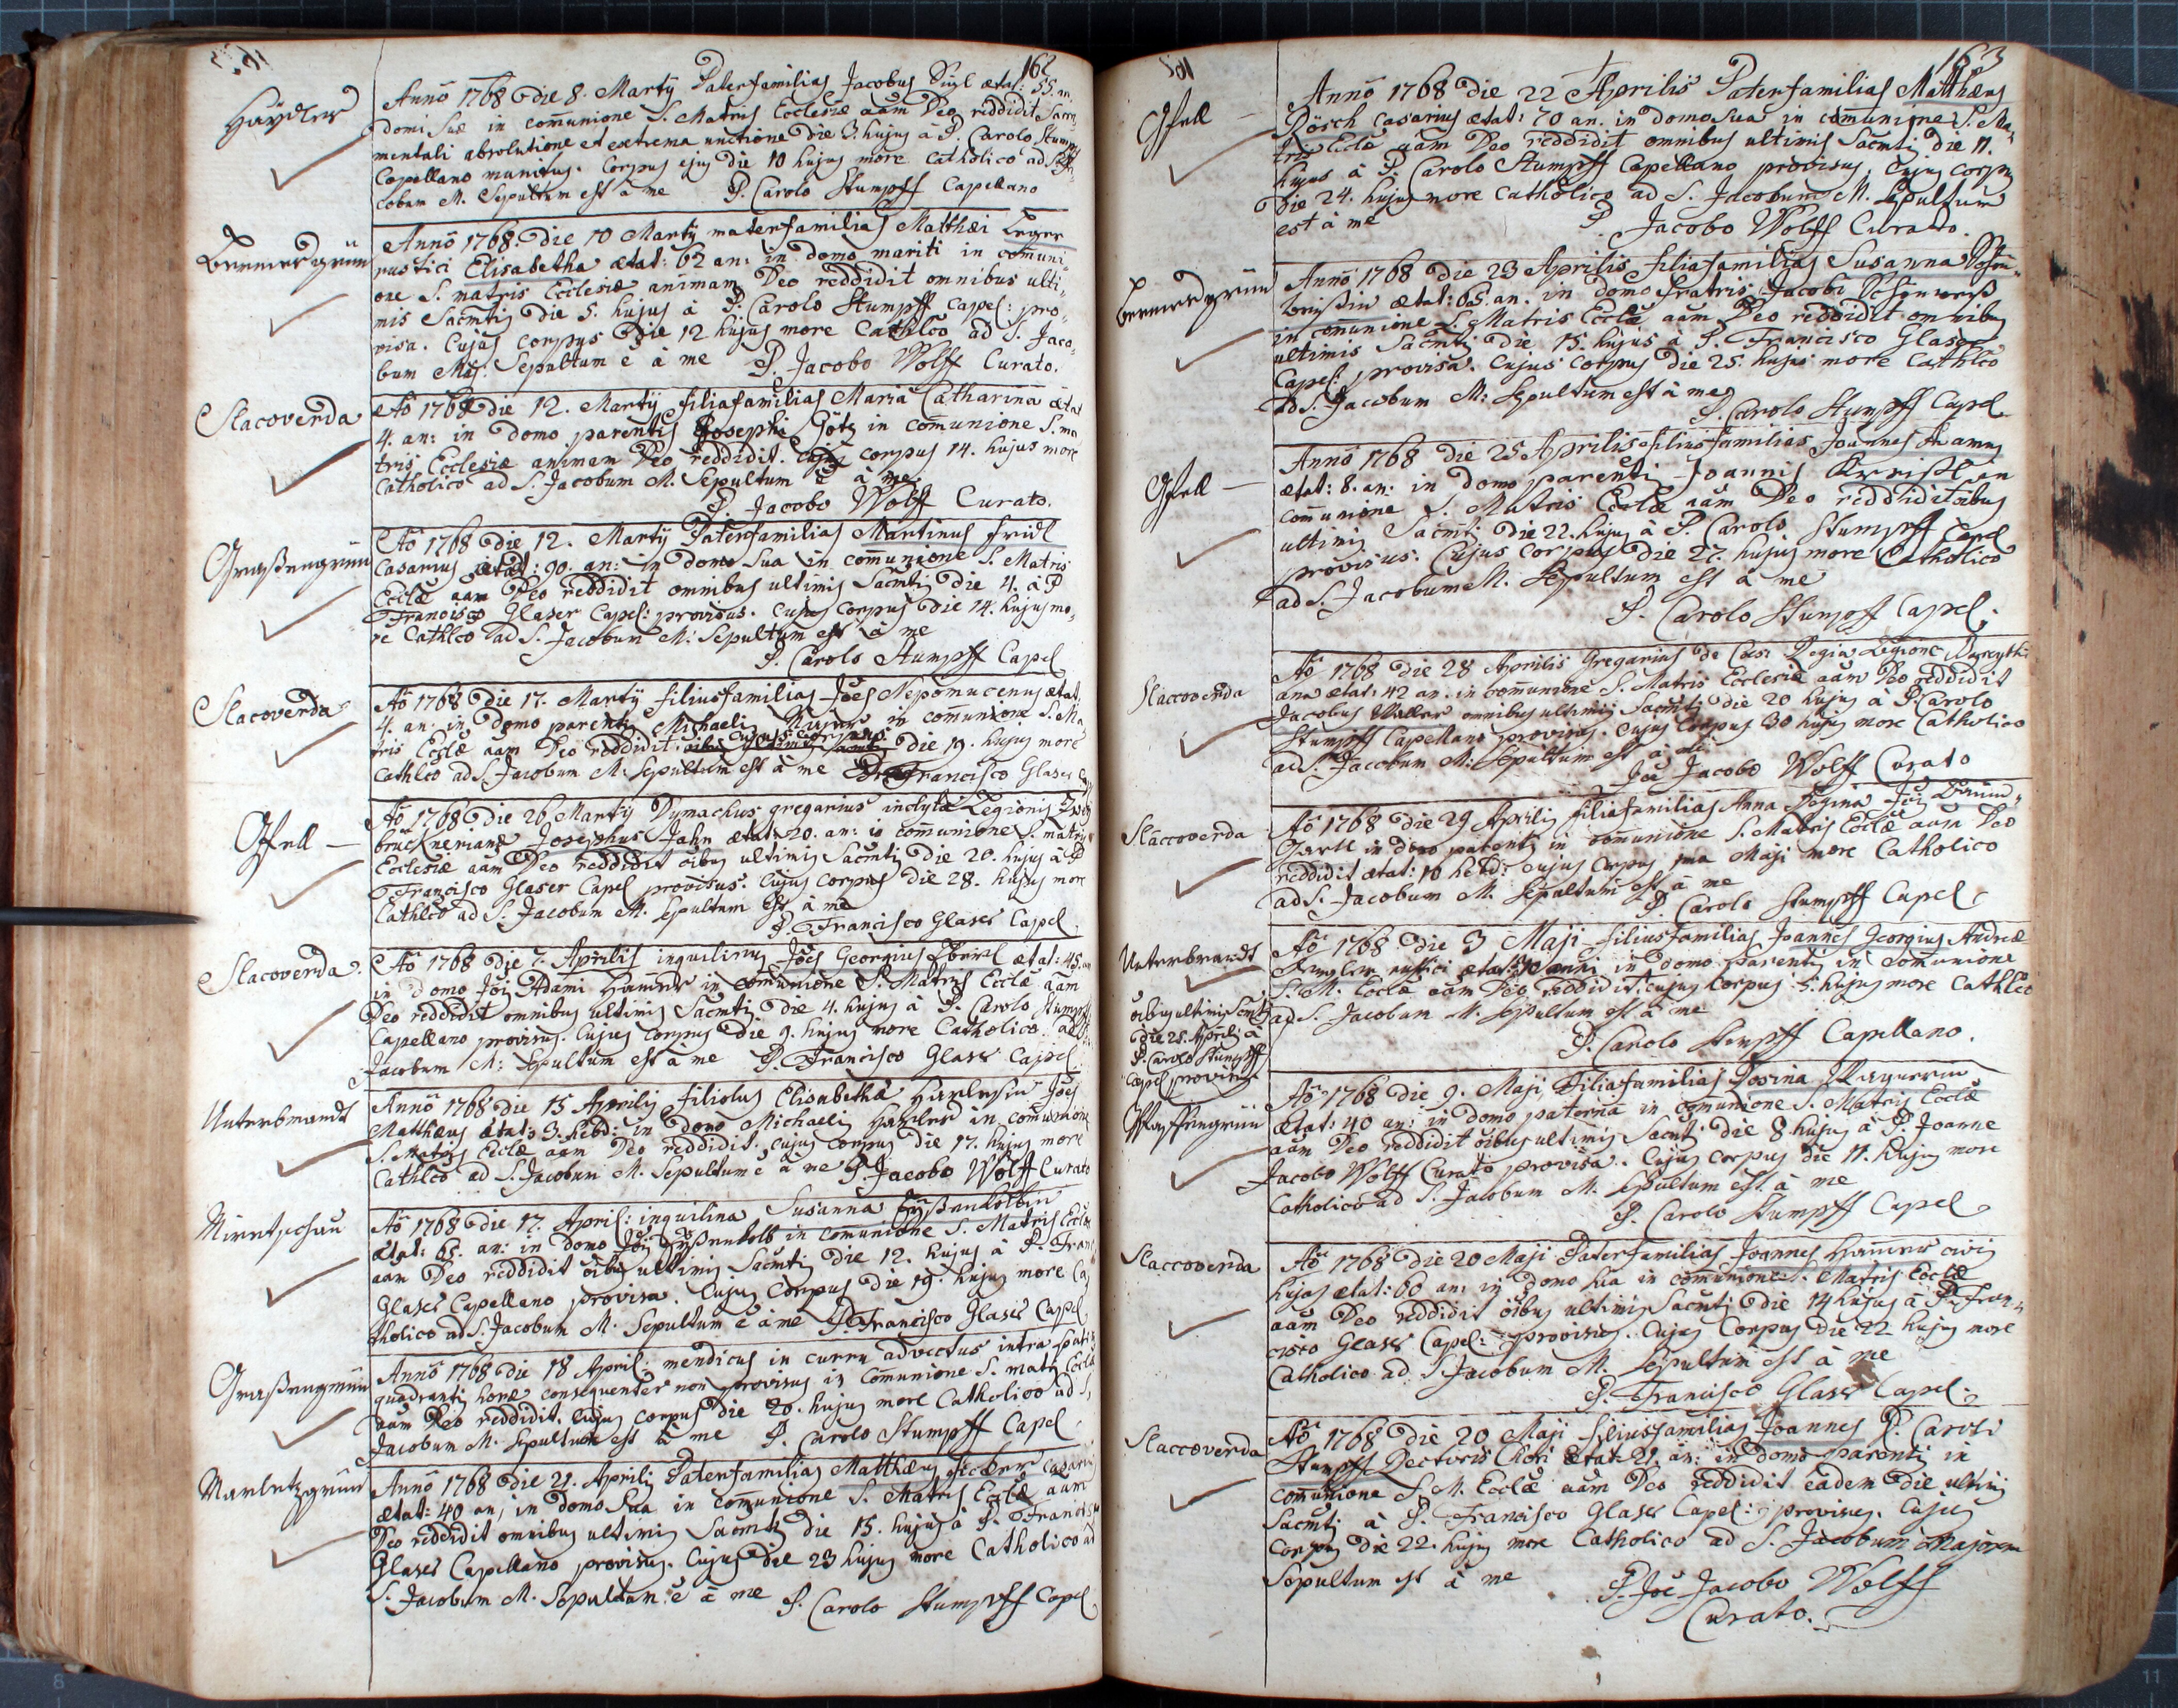 162
Haÿdles
Anno 1768 die 8. Martÿ Paterfamilias Jacobus ætat: 55. an.
domi suæ in comunione S. Matris Ecclesiæ aām Deo reddidit Sacra
mentali absolutione et extrema unctione die 3. hujus à P. Carolo Stumpff
Capellano munitus. Corpus ejus die 10 hujus more Catholico ad S. Ja-
cobum M. Sepultum est à me P. Carolo Stumpff Capellano
Annō 1768. die 10 Martÿ materfamilias Matthæi Leger
rustici Elisabetha ætat: 62 an: in domo mariti in comuni-
one S. matris Ecclesiæ animam Deo reddidit omnibus ulti-
mis Sacmtis die 5. hujus à P. Carolo Stumpff Capel: pro-
visa. Cujus corpus die 12 hujus more Cathlco ad S. Jaco-
bum Maj: Sepultum ē à me P. Jacobo Wolff Curato.
Slacoverda
Aō 1768 die 12. Martÿ filiafamilias Maria Catharina ætat
4. an: in domo parentis Josephi Götz in comunione S. ma
tris Ecclesiæ animam Deo reddidit. cujus corpus 14. hujus more
Catholico ad S. Jacobum M. Sepultum ē à me
P. Jacobo Wolff Curato.
Graßengrün
Aō 1768 die 12. Martÿ Paterfamilias Martinus Fridl
Casarius ætat: 90. an: in domo Sua in comunione S. Matris
Ecclæ aam Deo reddidit omnibus ultimis Sacmtis die 4. à P
Francisco Glaser Capel: provisus. Cujus corpus die 14. hujus mo-
re Cathlco ad S. Jacobum M: Sepultum est à me
P. Carolo Stumpff Capel
Slacoverda
Aō 1768 die 17. Martÿ filiusfamilias Jōes Nepomucenus ætat:
4. an: in domo parentis Michaelis in comunione S. Ma
tris Ecclæ aam Deo reddidit. cujus corpus die 19. hujus more
Cathlco ad S. Jacobum M: Sepultum est à me P. Francisco Glaser
Gfell
Aō 1768 die 26 Martÿ Dymachus gregarius inclytæ Legionis
brucknerianæ Josephus Jahn ætat: 20. an: in comunione S. matris
Ecclesiæ aām Deo reddidit oibus ultimis Sacmtis die 20. hujus à P
Francisco Glaser Capel provisus. Cujus corpus die 28. hujus more
Cathlco ad S. Jacobum M. Sepultum est à me
P. Francisco Glaser Capel.
Slacoverda.
Aō 1768 die 7. Aprilis inquilinus Jōes Georgius Eberl ætat: 45. an
in domo Jōis Adami Hamer in comunione S. Matris Ecclæ aam
Deo reddidit omnibus ultimis Sacmtis die 4. hujus à P. Carolo Stumpff
Capellano provisus. Cujus corpus die 9. hujus more Catholico ad S.
Jacobum M: Sepultum est à me P. Francisco Glaser Capel
Unterbrandt
Annō 1768 die 15 Aprilis filiolus Elisabethæ Jōes
Matthæus ætat: 3. hebd: in domo Michaelis in comunione
S. Matris Ecclæ aam Deo reddidit. cujus corpus die 17. hujus more
Cathlco ad S. Jacobum M. Sepultum ē à me P. Jacobo Wolff Curato
Miretschau
Aō 1768 die 17. April: inquilina Susanna Eÿßenkolbin
ætat: 65. an: in domo Jōis Eÿßenkolb in comunione S. Matris Ecclæ
aam Deo reddidit oibus ultimis Sacmtis die 12. hujus à P. Fran:
Glaser Capellano provisa. Cujus corpus die 19. hujus more Ca
tholico ad S. Jacobum M. Sepultum ē à me P. Francisco Glaser Capel
Graßengrün
Annō 1768 die 18 April: mendicus in curru advectus intra spatium
quadrantis horæ consequenter non provisus in comunione S. matris Ecclæ
aam Deo reddidit. Cujus corpus die 20. hujus more Catholico ad S.
Jacobum M. Sepultum est à me P. Carolo Stumpff Capel
Marletzgrün
Anno 1768 die 21. Aprilis Paterfamilias Matthæus Ficker Casarius
ætat: 40 an; in domo Sua in comunione S. Matris Ecclæ aam
Deo reddidit omnibus ultimis Sacmtis die 15. hujus à P. Francisco
Glaser Capellano provisus. Cujus die 23 hujus more Catholico ad
S. Jacobum M. Sepultum ē à me P. Carolo Stumpff Capel
163
Gfell
Anno 1768 die 22 Aprilis Paterfamilias Matthæus
Pösch casarius ætat: 70 an. in domo sua in comunione S. Ma-
tris Ecclæ aām Deo reddidit omnibus ultimis Sacmtis die 11.
hujus à P. Carolo Stumpff Capellano provisus, Cujus corpus
die 24. hujus more catholico ad S. Jacobum M. Sepultum
est à me P. Jacobo Wolff Curato.
Anno 1768 die 23 Aprilis filiafamilias Susanna Schön-
weißin ætat: 65. an. in domo fratris Jacobi Schönweiß
in comunione S. Matris Ecclæ aām Deo reddidit omnibus
ultimis Sacmtis die 15. hujus à P. Francisco Glaser
Capel: provisa. Cujus corpus die 25. hujus more Cathlco
ad S. Jacobum M: Sepultum est à me
P. Carolo Stumpff Capel
Gfell
Anno 1768 die 25 Aprilis filiusfamilias Joannes Adamus
ætat: 8. an: in domo parentis Joannis in
comunione S. Matris Ecclæ aām Deo reddidit oibus
ultimis Sacmtis die 22. hujus à P. Carolo Stumpff Capel
provisus. Cujus corpus die 27. hujus more Catholico
ad S. Jacobum M. Sepultum est à me
P. Carolo Stumpff Capel.
Slaccoverda
Aō 1768 die 28 Aprilis Gregarius de Cæs: Regia Legione
ana ætat: 42 an. in comunione S. Matris Ecclesiæ aām Deo reddidit
Jacobus Weller omnibus ultimis Sacmtis die 20 hujus à P. Carolo
Stumpff Capellano provisus. cujus corpus 30 hujus more Catholico
ad S. Jacobum M: Sepultum est à me
Joē Jacobo Wolff Curato
Slaccoverda
Aō 1768 die 29 Aprilis filiafamilias Anna Regina Jōis
in domo parentis in comunione S. Matris Ecclæ aam Deo
reddidit ætat: 10 hebd: cujus corpus 1ma Maji more Catholico
ad S. Jacobum M. Sepultum est à me
P. Carolo Stumpff Capel
Unterbrandt
Aō 1768 die 3 Maji filiusfamilias Joannes Georgius Andreæ
rustici ætat: 10 anni in domo parentis in comunione
S. M. Ecclæ aām Deo reddidit. cujus corpus 5. hujus more Cathlco
ad S. Jacobum M. Sepultum est à me
P. Carolo Stumpff Capellano.
oibus ultimis Sacmtis
die 25. Aprilis à
P. Carolo Stumpff
Capel provisus
Pfaffengrün
Aō 1768 die 9. Maji, Filiafamilias Rosina Wagnerin
ætat: 40 an: in domo paterna in comunione S. Matris Ecclæ
aām Deo reddidit oibus ultimis Sacmtis die 8 hujus à P. Joanne
Jacobo Wolff Curato provisa. Cujus corpus die 11. hujus more
Catholico ad S. Jacobum M. Sepultum est à me
P. Carolo Stumpff Capel
Slaccoverda
Aō 1768 die 20 Maji Paterfamilias Joannes Hamer civis
hujas ætat: 60 an: in domo sua in comunione S. Matris Ecclæ
aām Deo reddidit oibus ultimis Sacmtis die 14 hujus à P. Fran-
cisco Glaser Capel: provisus. Cujus Corpus die 22 hujus more
Catholico ad S. Jacobum M. Sepultum est à me
P. Francisco Glaser Capel.
Slaccoverda
Aō 1768 die 20 Maji filiusfamilias Joannes P. Caroli
Stumpff Rectoris Chori ætat: 21. an: in domo parentis in
comunione S. M. Ecclæ aām Deo reddidit eadem die ultimis
Sacmtis à P. Francisco Glaser Capel: provisus. Cujus
Corpus die 22. hujus more Catholico ad S. Jacobum Majorem
Sepultum est à me P. Joē Jacobo Wolff
Curato.